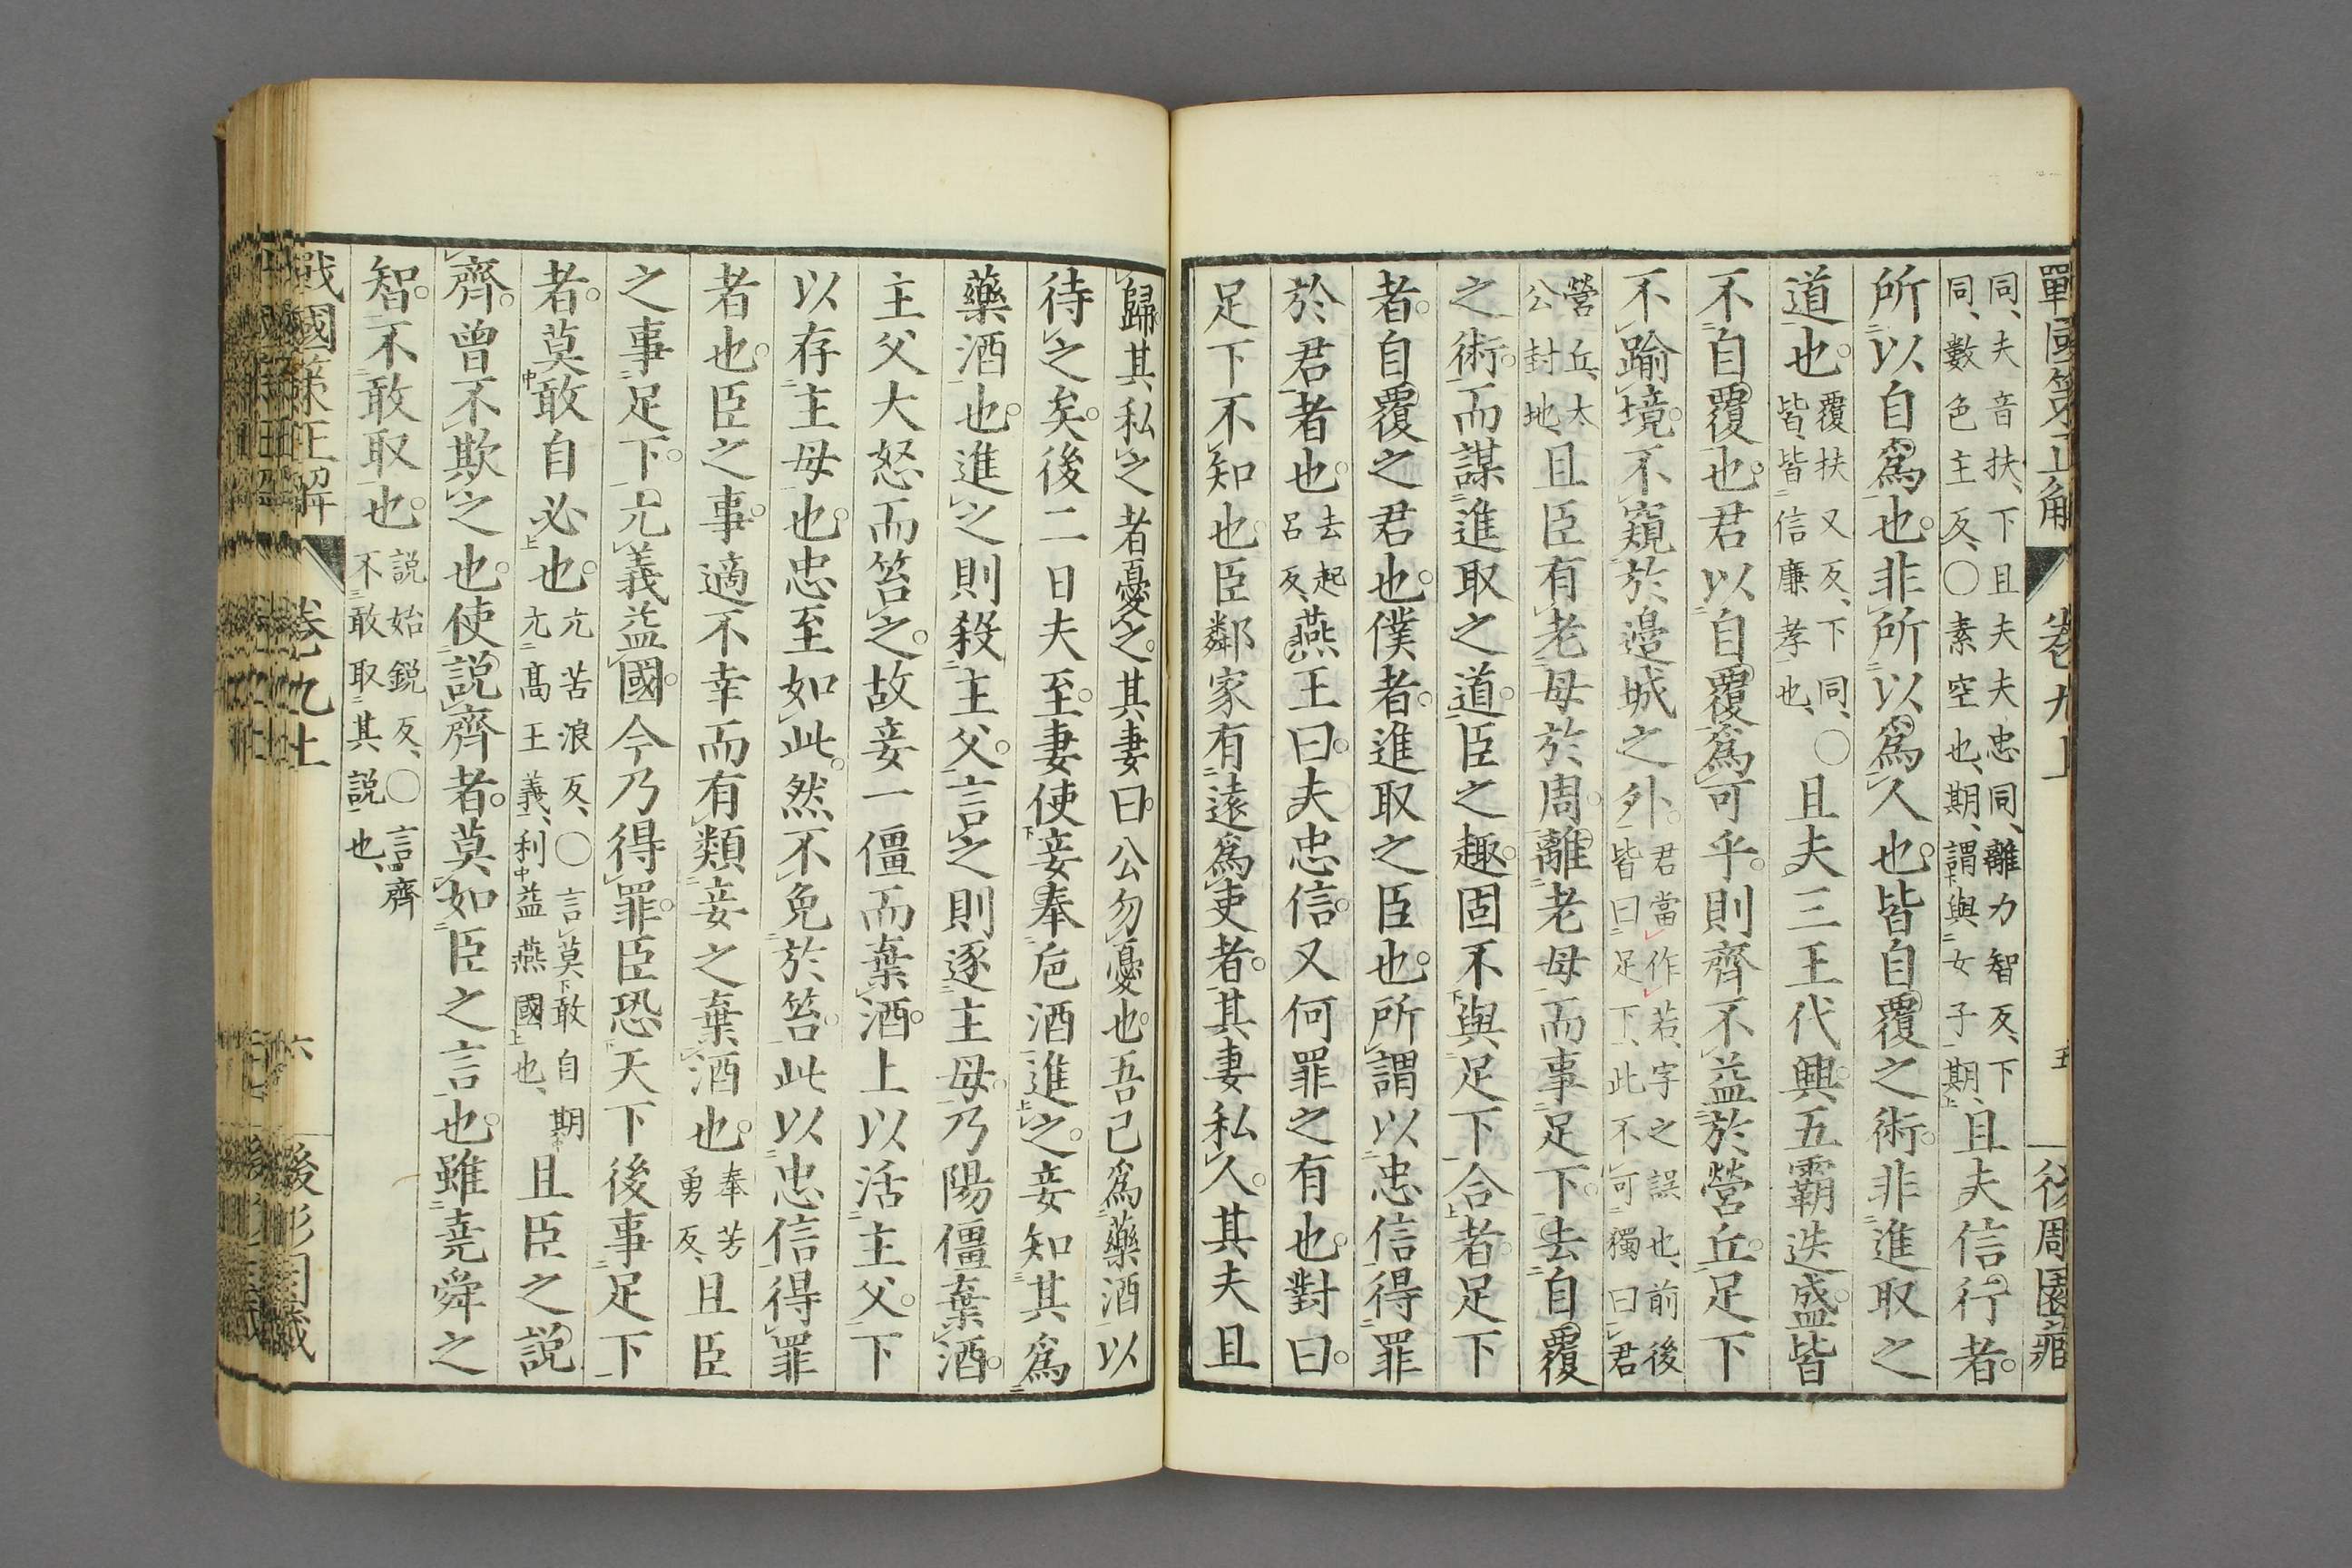 戰國策正解 卷九上 五 後周園藏
同、夫音扶、下且夫夫忠同、離力智反、下
同、數色主反、○素空也、期、謂與女子期、且夫信行者。
所以自爲也。非所以爲人也。皆自覆之術。非進取之
道也。覆扶又反、下同、○
皆、皆信廉孝也、且夫三王代興。五霸迭盛。皆
不自覆也。君以自覆爲可乎。則齊不益於營丘。足下
不踰境。不窺於邉城之外。君當作若、字之誤也、前後
皆曰足下、此不可獨曰君
營丘、太
公封地、且臣有老母於周。離老母而事足下。去自覆
之術。而謀進取之道。臣之趣。固不與足下合者。足下
者。自覆之君也。僕者。進取之臣也。所謂以忠信得罪
於君者也。去起
呂反、燕王曰。夫忠信。又何罪之有也。對曰。
足下不知也。臣鄰家有遠爲吏者。其妻私人。其夫且
歸。其私之者憂之。其妻曰。公勿憂也。吾已爲藥酒以
待之矣。後二日夫至。妻使妾奉巵酒進之。妾知其爲
藥酒也。進之則殺主父。言之則逐主母。乃陽僵棄酒。
主父大怒而笞之。故妾一僵而棄酒。上以活主父。下
以存主母也。忠至如此。然不免於笞。此以忠信得罪
者也。臣之事。適不幸而有類妾之棄酒也。奉芳
勇反、且臣
之事足下。亢義益國。今乃得罪。臣恐天下後事足下
者。莫敢自必也。亢苦浪反、○言莫敢自期
亢高王義、利益燕國也、且臣之説
齊。曾不欺之也。使説齊者。莫如臣之言也。雖堯舜之
智。不敢取也。説始鋭反、○言齊
不敢取其説也、
戰國策正解 卷九上 六 後彫園藏